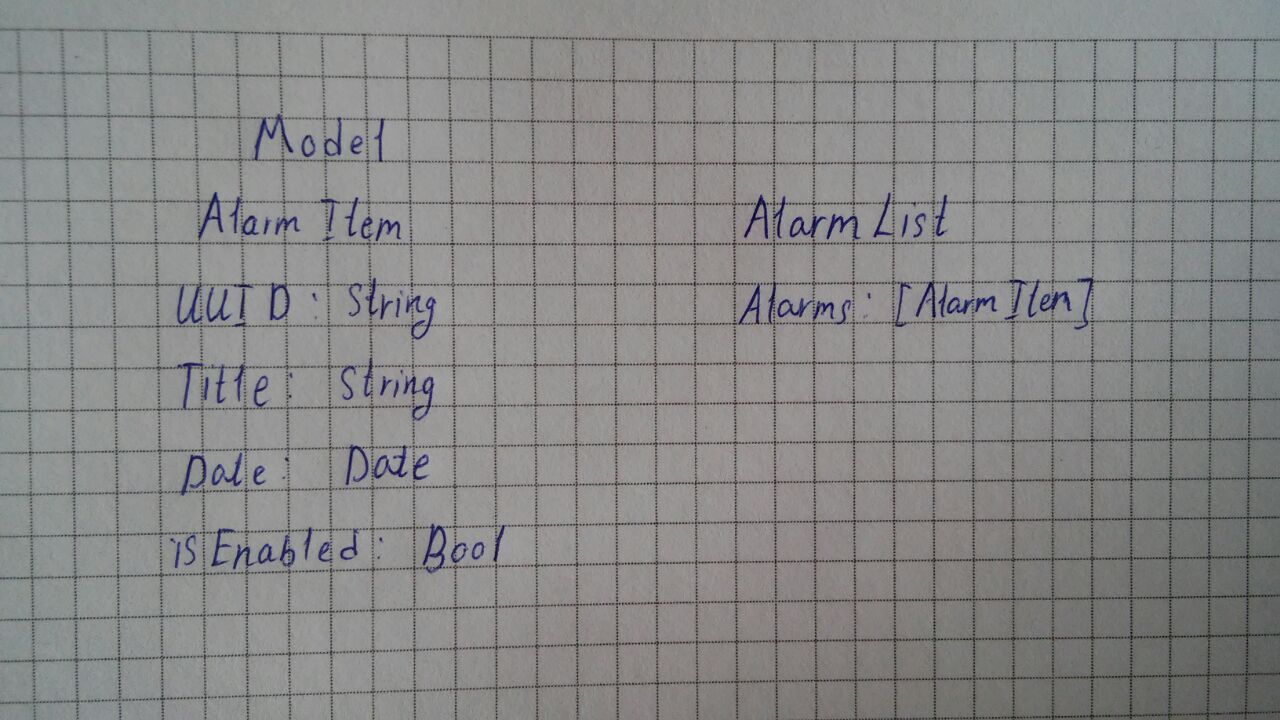 Model
Alarm Item
UUID: String
Title: String
Date: Date
isEnabled: Bool
Alarm List
Alarms: [Alarm Item]